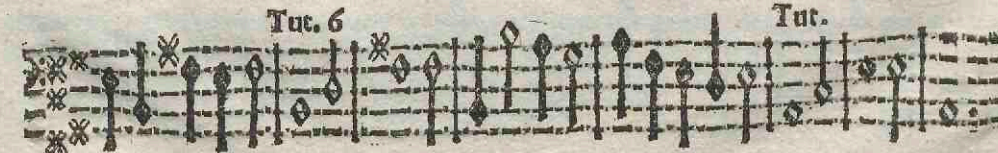 Tut. 6 Tut.